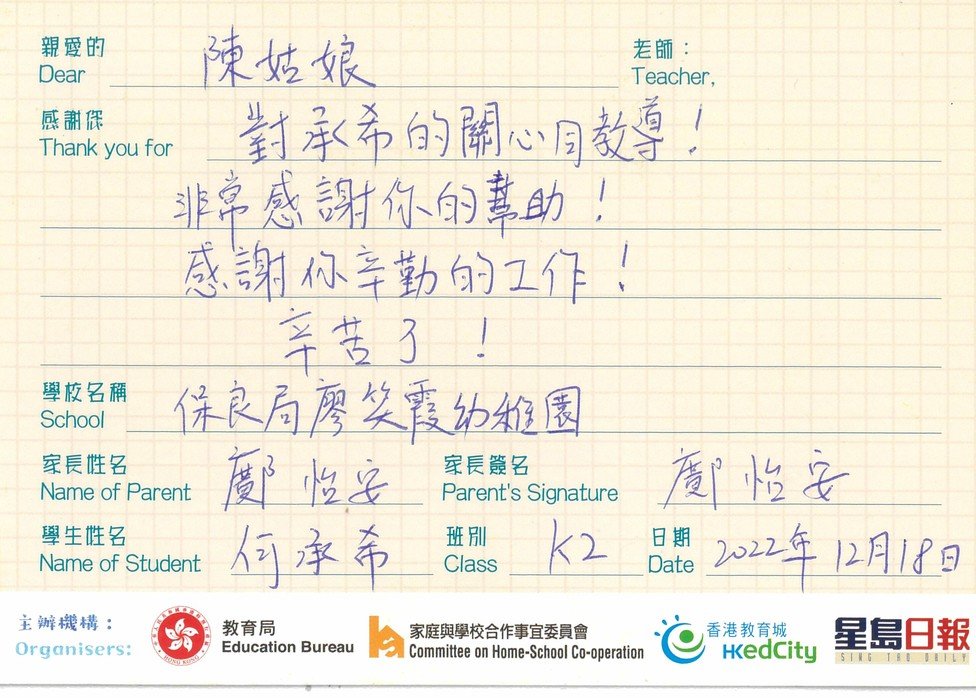 親愛的 陳姑娘 老師：
Dear Teacher,
感謝您 對承希的關心同教導！
Thank you for
非常感謝你的幫助！
感謝你辛勤的工作！
辛苦了！
學校名稱 保良局廖笑霞幼稚園
School
家長姓名 鄺怡安 家長簽名 鄺怡安
Name of Parent Parent's Signature
學生姓名 何承希 班別 K2 日期 2022年12月18日
Name of Student Class Date
主辦機構： 教育局 家庭與學校合作事宜委員會 香港教育城 星島日報
Organisers: Education Bureau Committee on Home-School Co-operation HKedCity SING TAO DAILY
HONG KONG